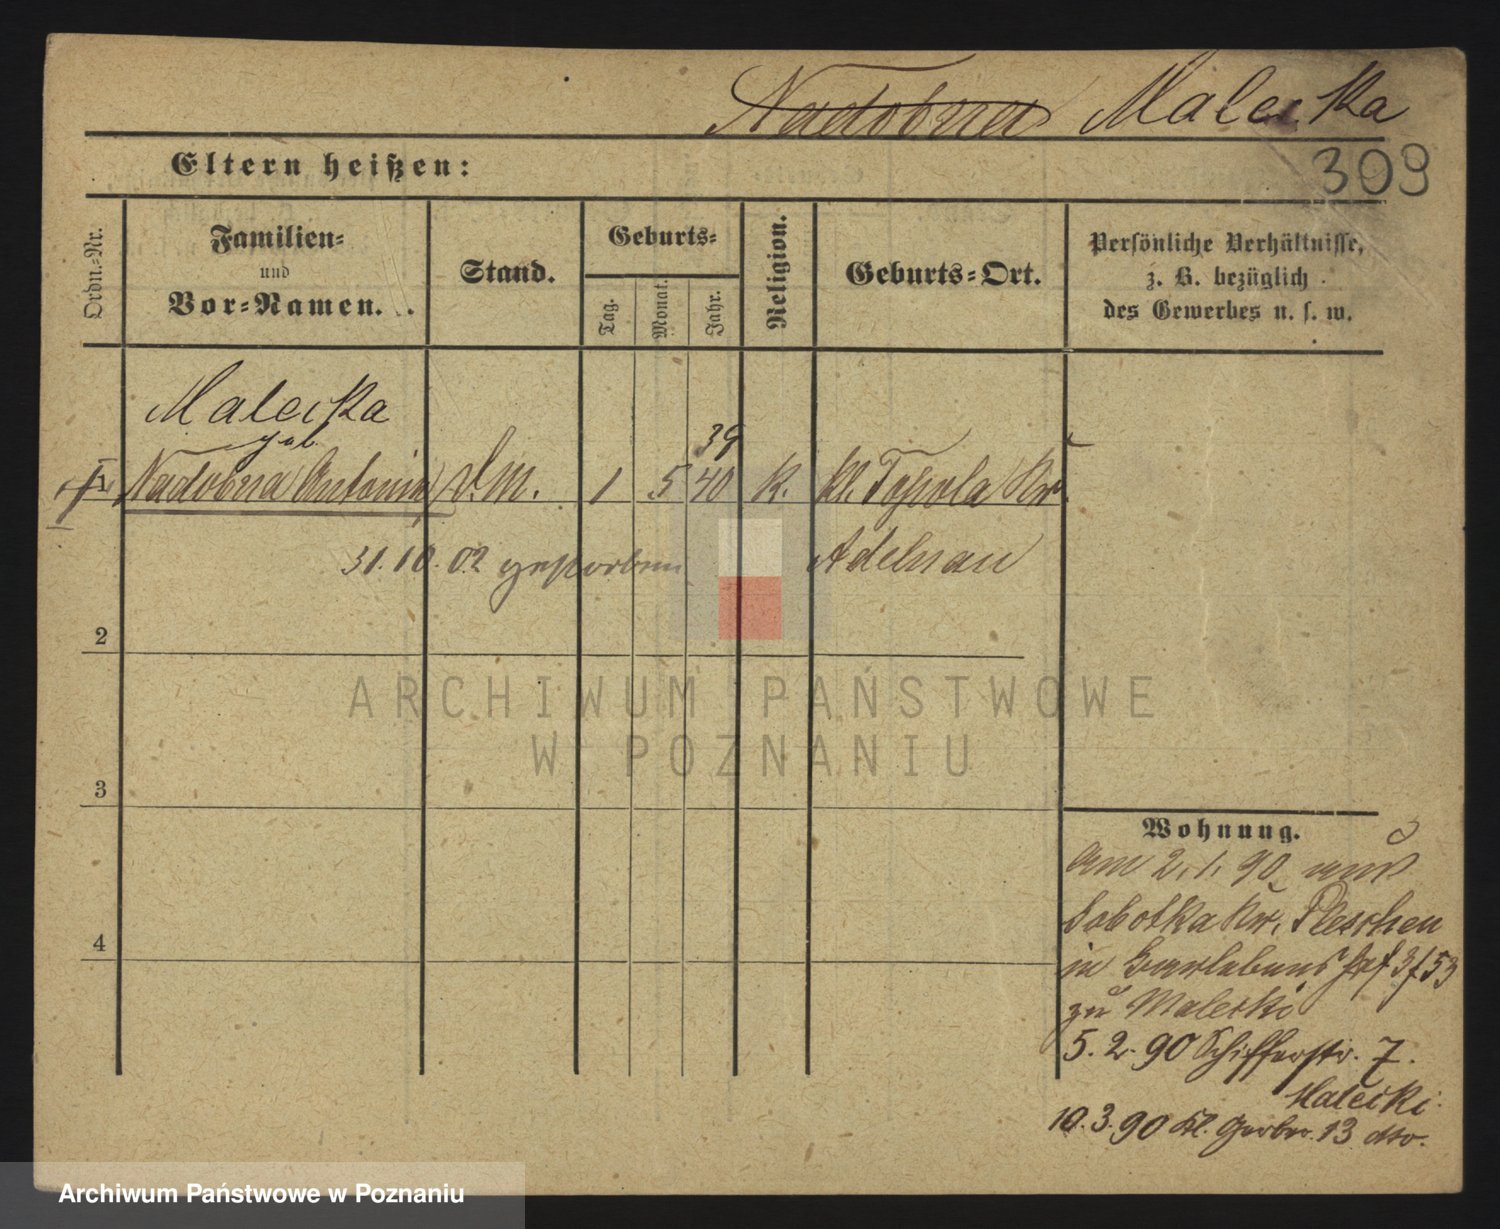 Nadobna Malecka
Eltern heißen:
309
Ordn.-Nr.
Familien-
und
Vor-Namen.
Stand.
Geburts-
Tag.
Monat.
Jahr.
Religion.
Geburts-Ort.
Persönliche Verhältnisse,
z. B. bezüglich
des Gewerbes u. s. w.
Malecka
geb.
39
1 Nadobna Antonie d. M. 1 5 40 K. Kl. Topola Kr.
Adelnau
31.10.02 gestorben
2
3
4
Wohnung.
Am 2.1.90 aus
Sobotka Kr. Pleschen
in
zu Malecki
5.2.90 Schifferstr. 7.
Malecki.
10.3.90 Kl. Gerber. 13 dto.
ARCHIWUM PAŃSTWOWE
W POZNANIU
Archiwum Państwowe w Poznaniu